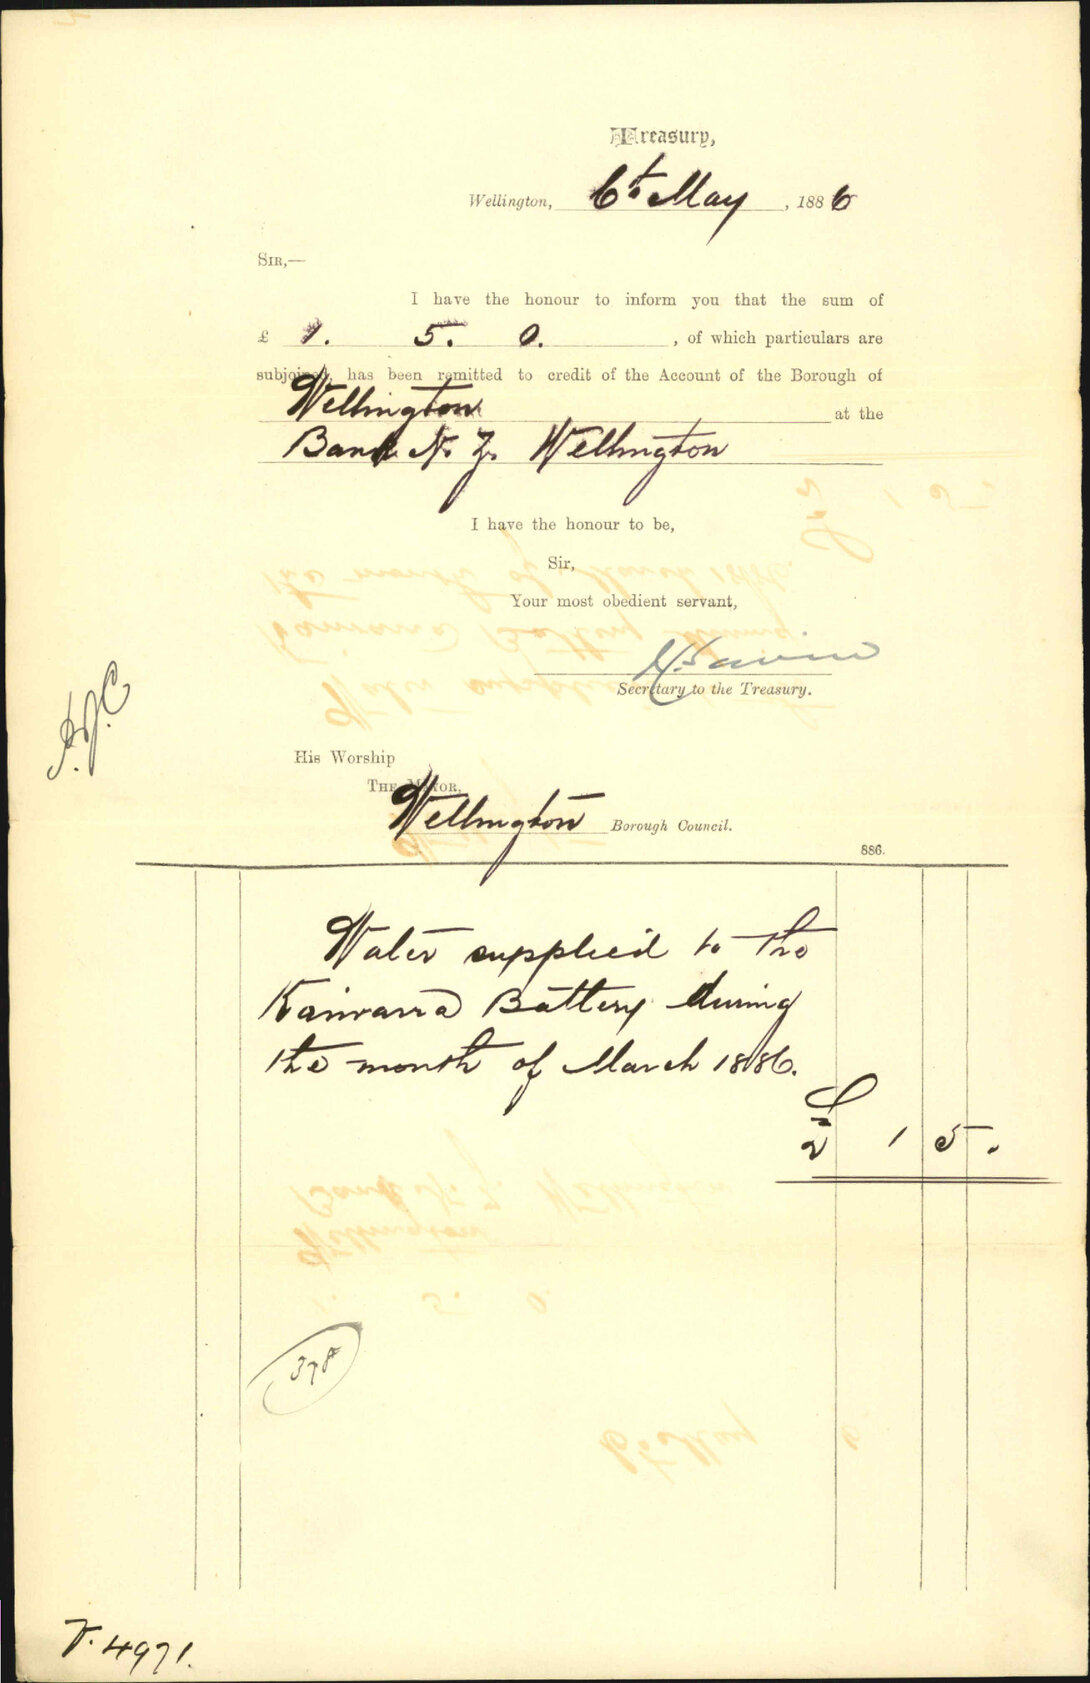 Treasury,
Wellington, 6th May, 1886
SIR,—
I have the honour to inform you that the sum of
£ 1. 5. 0. , of which particulars are
subjoined, has been remitted to credit of the Account of the Borough of
Wellington at the
Bank N. Z. Wellington
I have the honour to be,
Sir,
Your most obedient servant,
Secretary to the Treasury.
His Worship
THE MAYOR,
Wellington Borough Council.
886.
Water supplied to the
Kaiwarra Battery during
the month of March 1886.
£ 1 5 .
378
V. 4971.